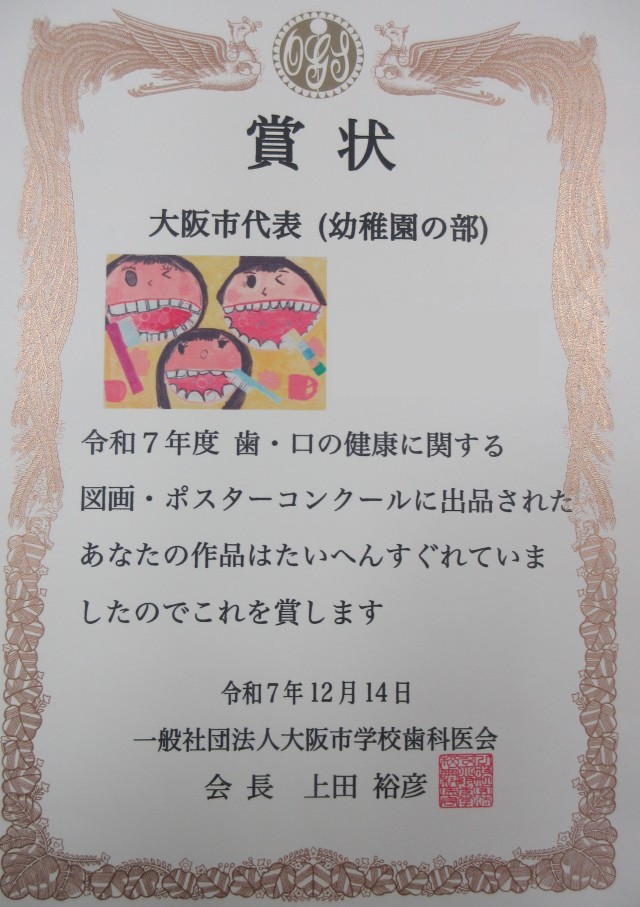 OGS
賞状
大阪市代表 (幼稚園の部)
令和７年度 歯・口の健康に関する
図画・ポスターコンクールに出品された
あなたの作品はたいへんすぐれていま
したのでこれを賞します
令和７年12月14日
一般社団法人大阪市学校歯科医会
会 長　上田 裕彦